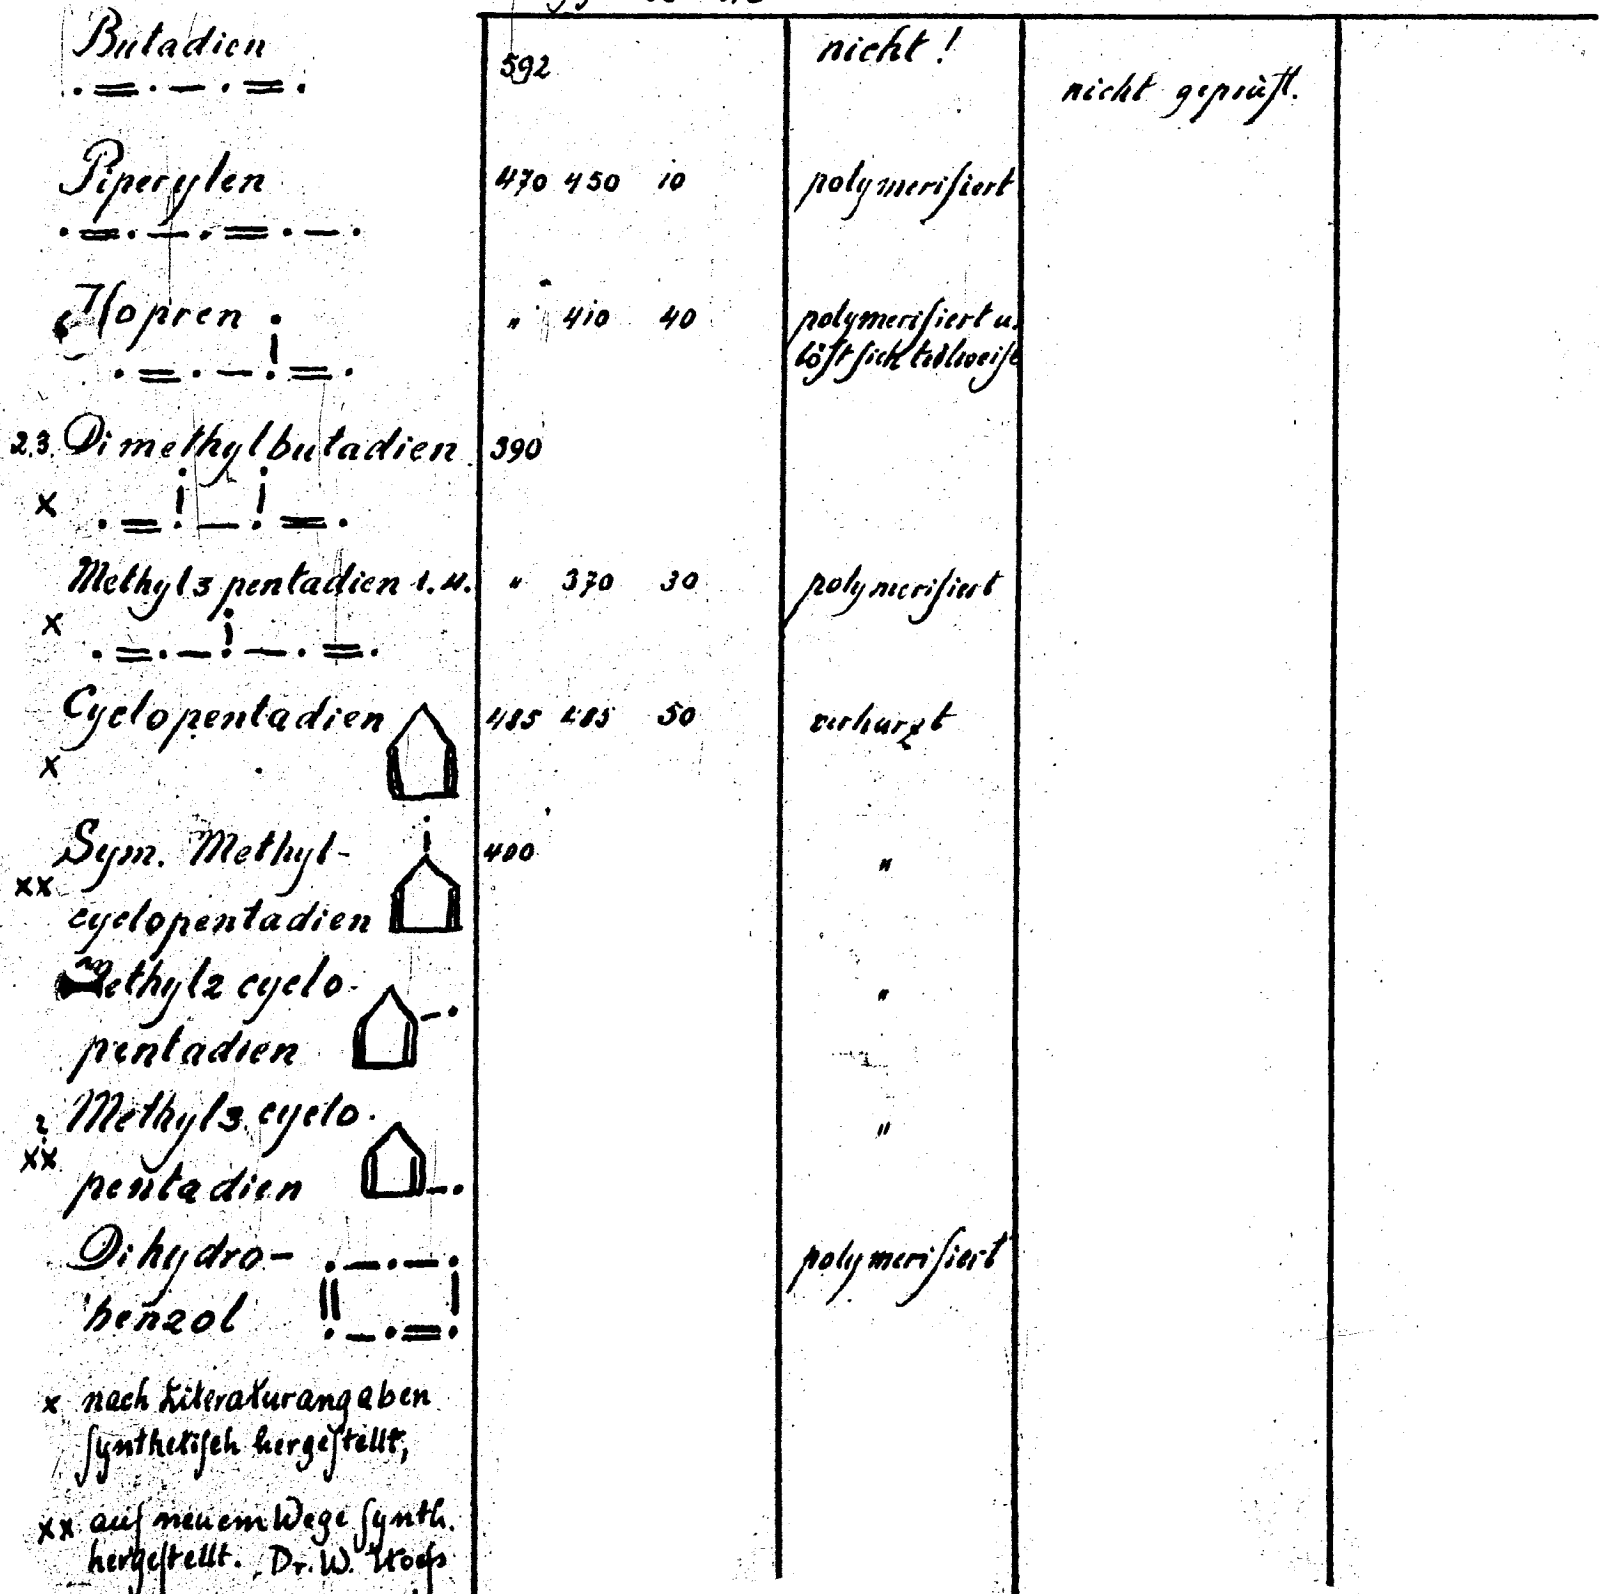 Butadien 592 nicht! nicht geprüft.
Piperylen 470 450 10 polymerisiert
Isopren " 410 40 polymerisiert u.
löst sich teilweise
2.3. Dimethylbutadien 390
x
Methyl 3 pentadien 1.4. " 370 30 polymerisiert
x
Cyclopentadien 485 485 50 verharzt
x
Sym. Methyl- 400 "
xx
cyclopentadien
Methyl 2 cyclo- "
pentadien
? Methyl 3 cyclo- "
xx
pentadien
Dihydro- polymerisiert
benzol
x nach Literaturangaben
synthetisch hergestellt,
xx auf neuem Wege synth.
hergestellt. Dr. W.